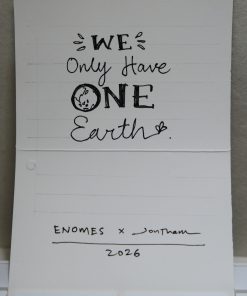 WE
Only Have
ONE
Earth.
ENOMES x Jontham
2026